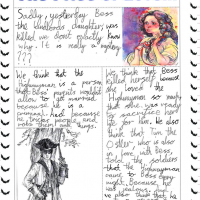 Sadly, yesterday Bess
the landlords daughter was
killed we don't exactly know
why. It is really a mystery
???
We think that the
Highwayman is a person
that Bess' parents wouldn't
allow to get married
because he is a
criminal and because
he tricks people and
robs them and things.
We think that Bess
killed herself because
she loved the
Highwayman so much
that she was ready
to sacrifice her
life for him. We also
think that Tim the
Ostler, who is also
in love with Bess,
told the soldiers
that the Highwayman
came to Bess every
night. Because, he
was jealous.
we also think that he